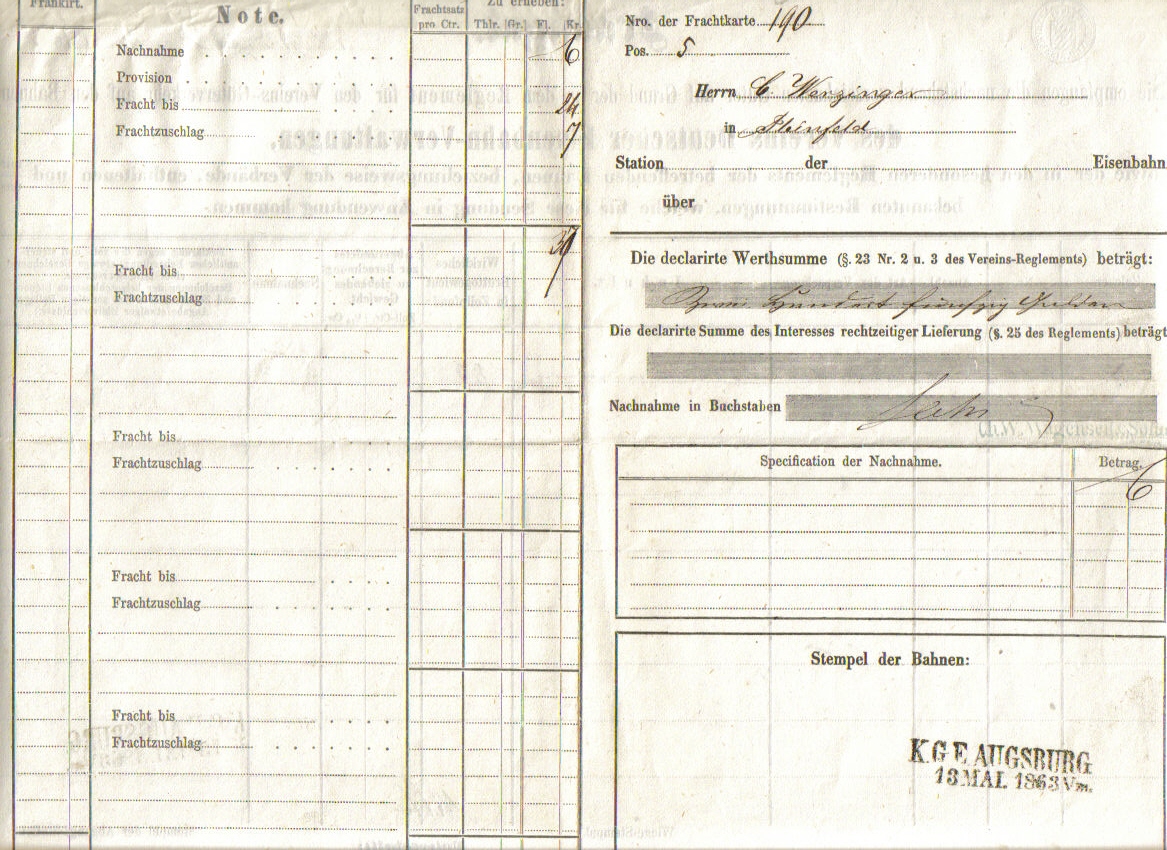 Frankirt.
Note.
Frachtsatz pro Ctr.
Zu erheben:
Thlr. Gr. Fl. Kr.
Nachnahme 6
Provision
Fracht bis 24
Frachtzuschlag 7
37
Fracht bis
Frachtzuschlag
Fracht bis
Frachtzuschlag
Fracht bis
Frachtzuschlag
Fracht bis
Frachtzuschlag
Nro. der Frachtkarte 190
Pos. 5
Herrn C. Wenzinger
in Steinfeld
Station der Eisenbahn
über
Die declarirte Werthsumme (§. 23 Nr. 2 u. 3 des Vereins-Reglements) beträgt:
Hundert fünfzig Gulden
Die declarirte Summe des Interesses rechtzeitiger Lieferung (§. 25 des Reglements) beträgt
Nachnahme in Buchstaben Sechs
Specification der Nachnahme. Betrag.
6
Stempel der Bahnen:
K G E AUGSBURG
13 MAI. 1863 Vm.